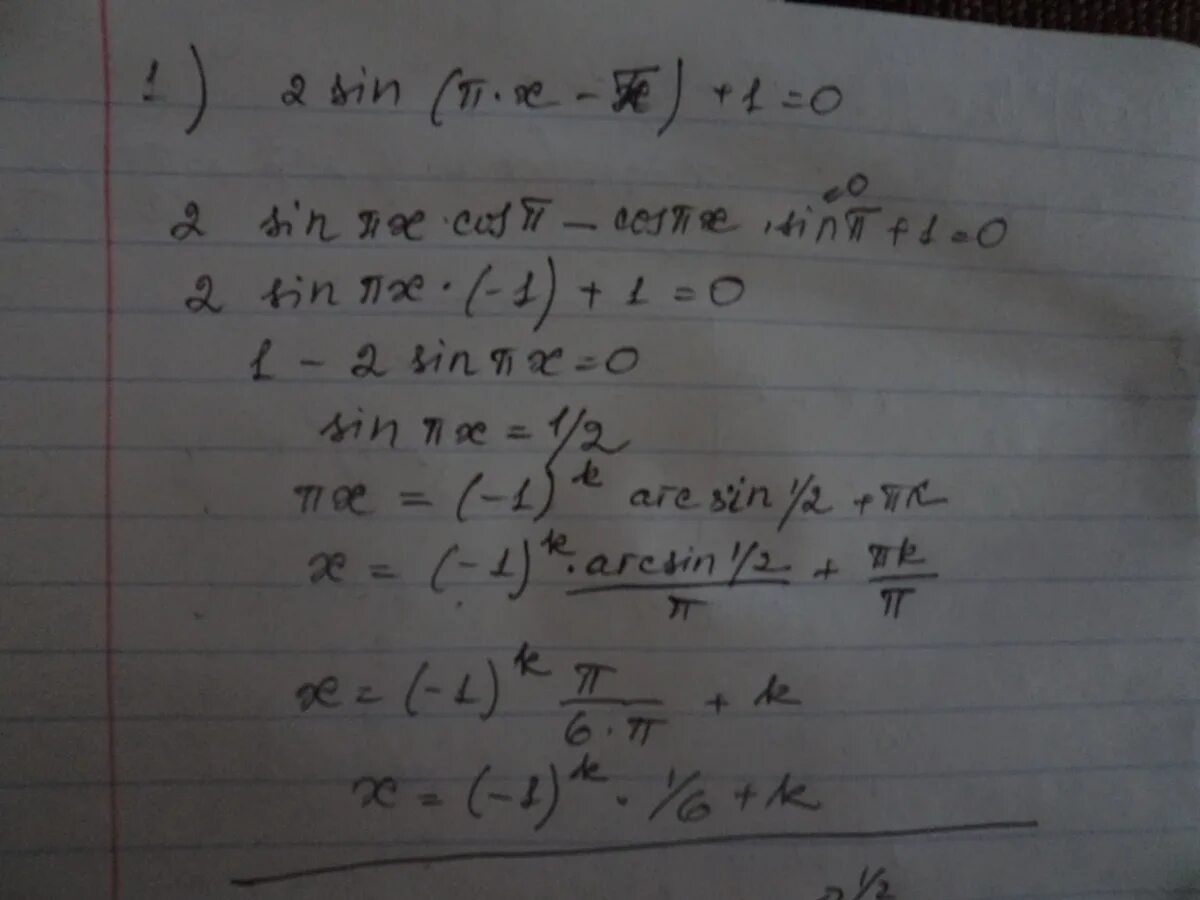 1) 2 sin (π·x - π) + 1 = 0
2 sin πx · cosπ - cosπx · sinπ + 1 = 0
= 0
2 sin πx · (-1) + 1 = 0
1 - 2 sin πx = 0
sin πx = 1/2
πx = (-1)^k arcsin 1/2 + πk
x = (-1)^k · arcsin 1/2 / π + πk / π
x = (-1)^k π / 6·π + k
x = (-1)^k · 1/6 + k
1/2